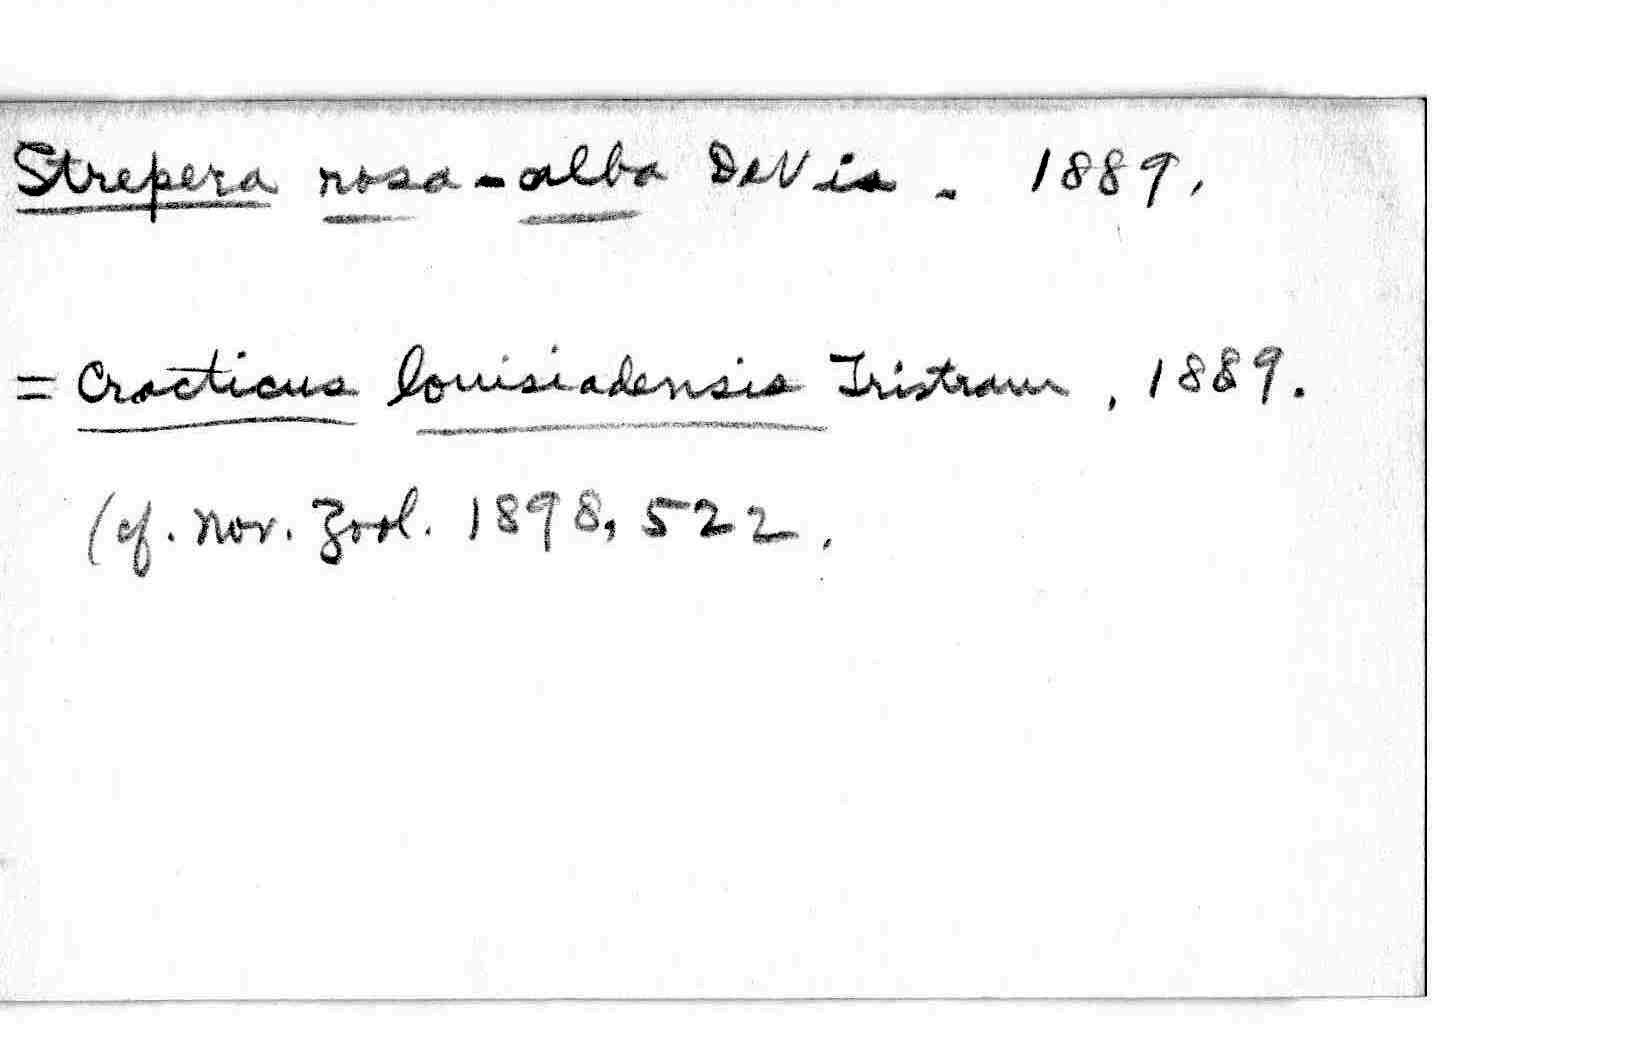 Strepera rosa-alba DeVis. 1889.
= Cracticus louisiadensis Tristram, 1889.
(cf. Nov. Zool. 1898, 522.